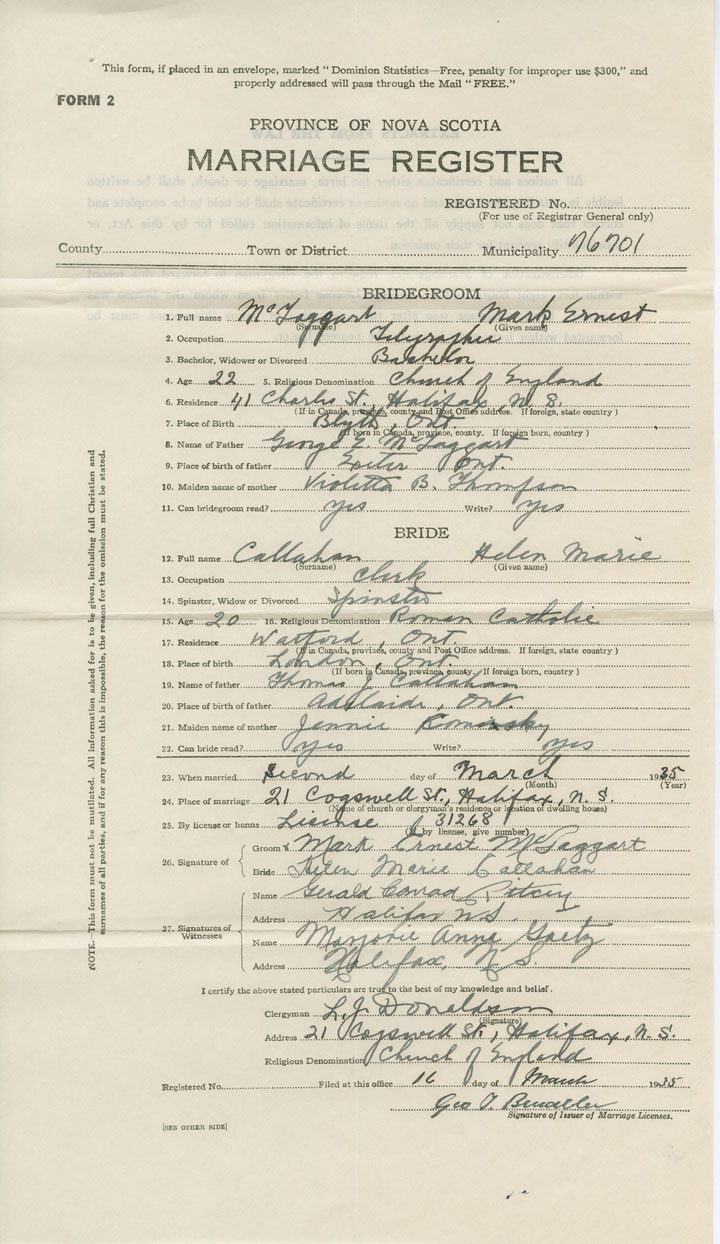 This form, if placed in an envelope, marked "Dominion Statistics—Free, penalty for improper use $300," and
properly addressed will pass through the Mail "FREE."
FORM 2
PROVINCE OF NOVA SCOTIA
MARRIAGE REGISTER
REGISTERED No.
(For use of Registrar General only)
County Town or District Municipality 76701
BRIDEGROOM
1. Full name McTaggart Mark Ernest
(Surname) (Given name)
2. Occupation Telegrapher
3. Bachelor, Widower or Divorced Bachelor
4. Age 22 5. Religious Denomination Church of England
6. Residence 41 Charles St., Halifax, N. S.
(If in Canada, province, county and Post Office address. If foreign, state country)
7. Place of Birth Blyth, Ont.
(If born in Canada, province, county. If foreign born, country)
8. Name of Father George E. McTaggart
9. Place of birth of father Exeter Ont.
10. Maiden name of mother Violetta B. Thompson
11. Can bridegroom read? Yes Write? Yes
BRIDE
12. Full name Callahan Helen Marie
(Surname) (Given name)
13. Occupation Clerk
14. Spinster, Widow or Divorced Spinster
15. Age 20 16. Religious Denomination Roman Catholic
17. Residence Watford, Ont.
(If in Canada, province, county and Post Office address. If foreign, state country)
18. Place of birth London, Ont.
(If born in Canada, province, county. If foreign born, country)
19. Name of father Thomas J. Callahan
20. Place of birth of father Adelaide, Ont.
21. Maiden name of mother Jennie
22. Can bride read? Yes Write? Yes
23. When married Second day of March 1935
(Month) (Year)
24. Place of marriage 21 Cogswell St., Halifax, N. S.
(Name of church or clergyman's residence or location of dwelling house)
25. By license or banns License 31268
(If by license, give number)
26. Signature of
Groom Mark Ernest McTaggart
Bride Helen Marie Callahan
27. Signatures of Witnesses
Name Gerald Conrad
Address Halifax NS.
Name Marjorie Anna Goetz
Address Halifax, N.S.
I certify the above stated particulars are true to the best of my knowledge and belief.
Clergyman L. J. Donaldson
(Signature)
Address 21 Cogswell St., Halifax, N. S.
Religious Denomination Church of England
Registered No. Filed at this office 16 day of March 1935
Geo T.
Signature of Issuer of Marriage Licenses.
[SEE OTHER SIDE]
NOTE.—This form must not be mutilated. All information asked for is to be given, including full Christian and
surnames of all parties, and if for any reason this is impossible, the reason for the omission must be stated.